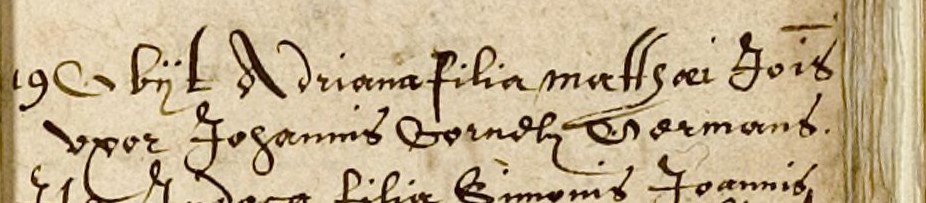 19 Obijt Adriana filia matthæi Jois
vxor Johannis Cornely Germans.
filia Simonis Joannis